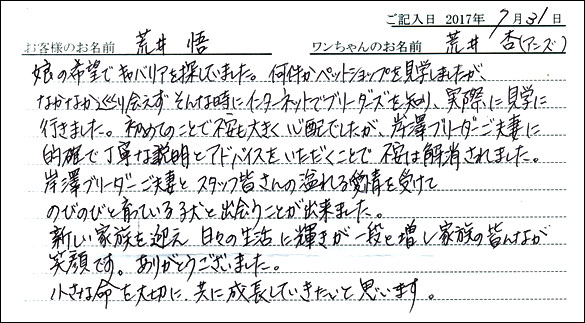 ご記入日 2017年 7月31日
お客様のお名前 荒井 悟 ワンちゃんのお名前 荒井 杏(アンズ)
娘の希望でキャバリアを探していました。何件かペットショップを見学しましたが、
なかなか巡り会えず そんな時にインターネットでブリーダーズを知り、実際に見学に
行きました。初めてのことで不安も大きく心配でしたが、岸澤ブリーダーご夫妻に
的確で丁寧な説明とアドバイスをいただくことで 不安は解消されました。
岸澤ブリーダーご夫妻と スタッフ皆さんの溢れる愛情を受けて
のびのびと育っている子犬と出会うことが出来ました。
新しい家族を迎え 日々の生活に輝きが一段と増し家族の皆んなが
笑顔です。ありがとうございました。
小さな命を大切に、共に成長していきたいと思います。